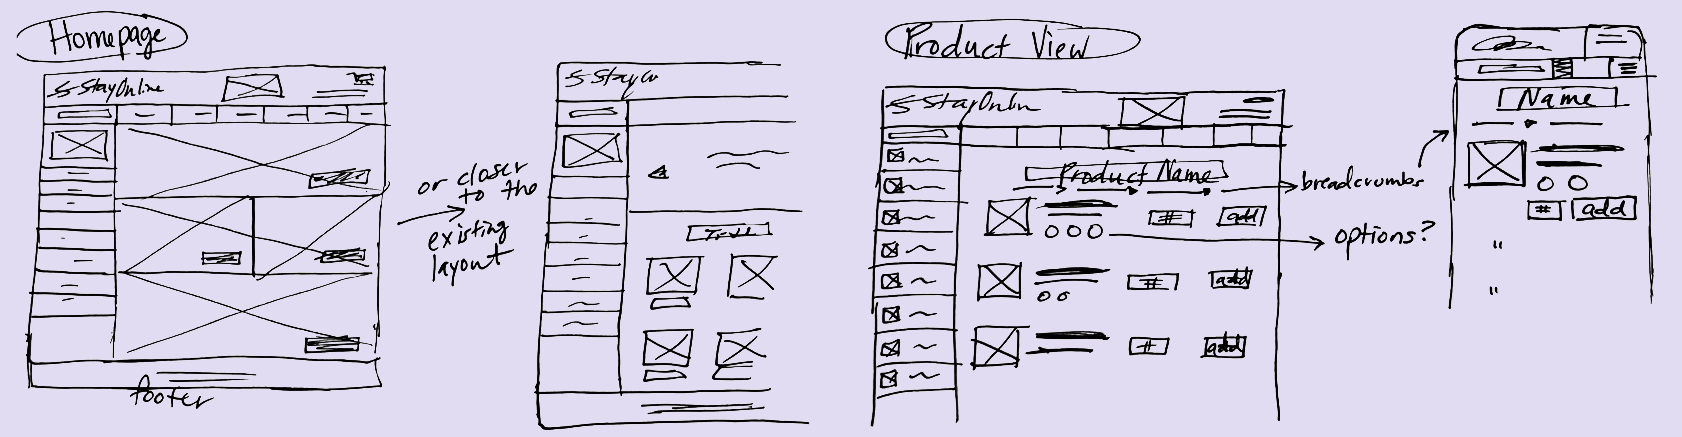 Homepage
StayOnline
footer
or closer
to the
existing
layout
Product View
StayOnlin
Product Name
breadcrumbs
# add
options?
# add
# add
Name
# add
"
"